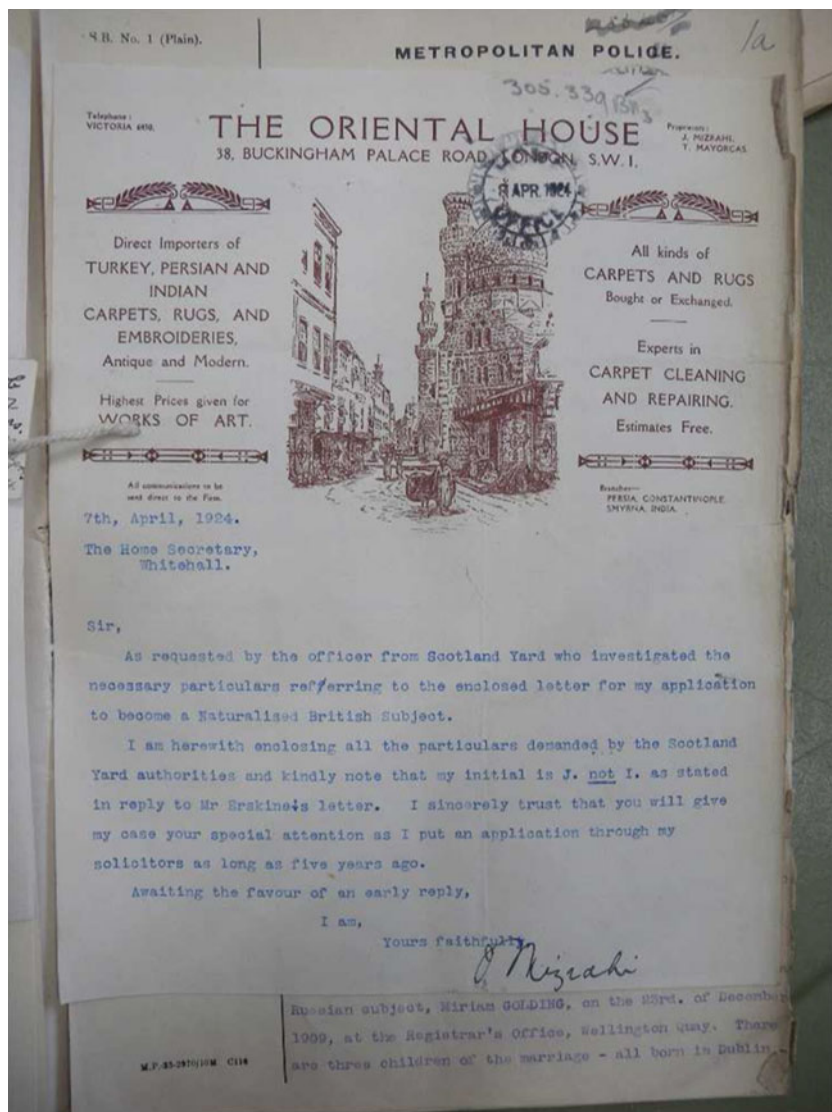 S.B. No. 1 (Plain).
METROPOLITAN POLICE.
1a
305.339
Telephone:
VICTORIA
THE ORIENTAL HOUSE
38, BUCKINGHAM PALACE ROAD, LONDON, S.W. 1.
Proprietors:
J. MIZRAHI.
T. MAYORCAS.
8 APR. 1924
OFFICE
Direct Importers of
TURKEY, PERSIAN AND
INDIAN
CARPETS, RUGS, AND
EMBROIDERIES,
Antique and Modern.
Highest Prices given for
WORKS OF ART.
All communications to be
sent direct to the Firm.
All kinds of
CARPETS AND RUGS
Bought or Exchanged.
Experts in
CARPET CLEANING
AND REPAIRING.
Estimates Free.
Branches—
PERSIA, CONSTANTINOPLE
SMYRNA, INDIA.
7th, April, 1924.
The Home Secretary,
Whitehall.
Sir,
As requested by the officer from Scotland Yard who investigated the
necessary particulars referring to the enclosed letter for my application
to become a Naturalised British Subject.
I am herewith enclosing all the particulars demanded by the Scotland
Yard authorities and kindly note that my initial is J. not I. as stated
in reply to Mr Erskine's letter. I sincerely trust that you will give
my case your special attention as I put an application through my
solicitors as long as five years ago.
Awaiting the favour of an early reply,
I am,
Yours faithfully
J Mizrahi
Russian subject, Miriam GOLDING, on the 23rd. of December
1909, at the Registrar's Office, Wellington Quay. There
are three children of the marriage - all born in Dublin,